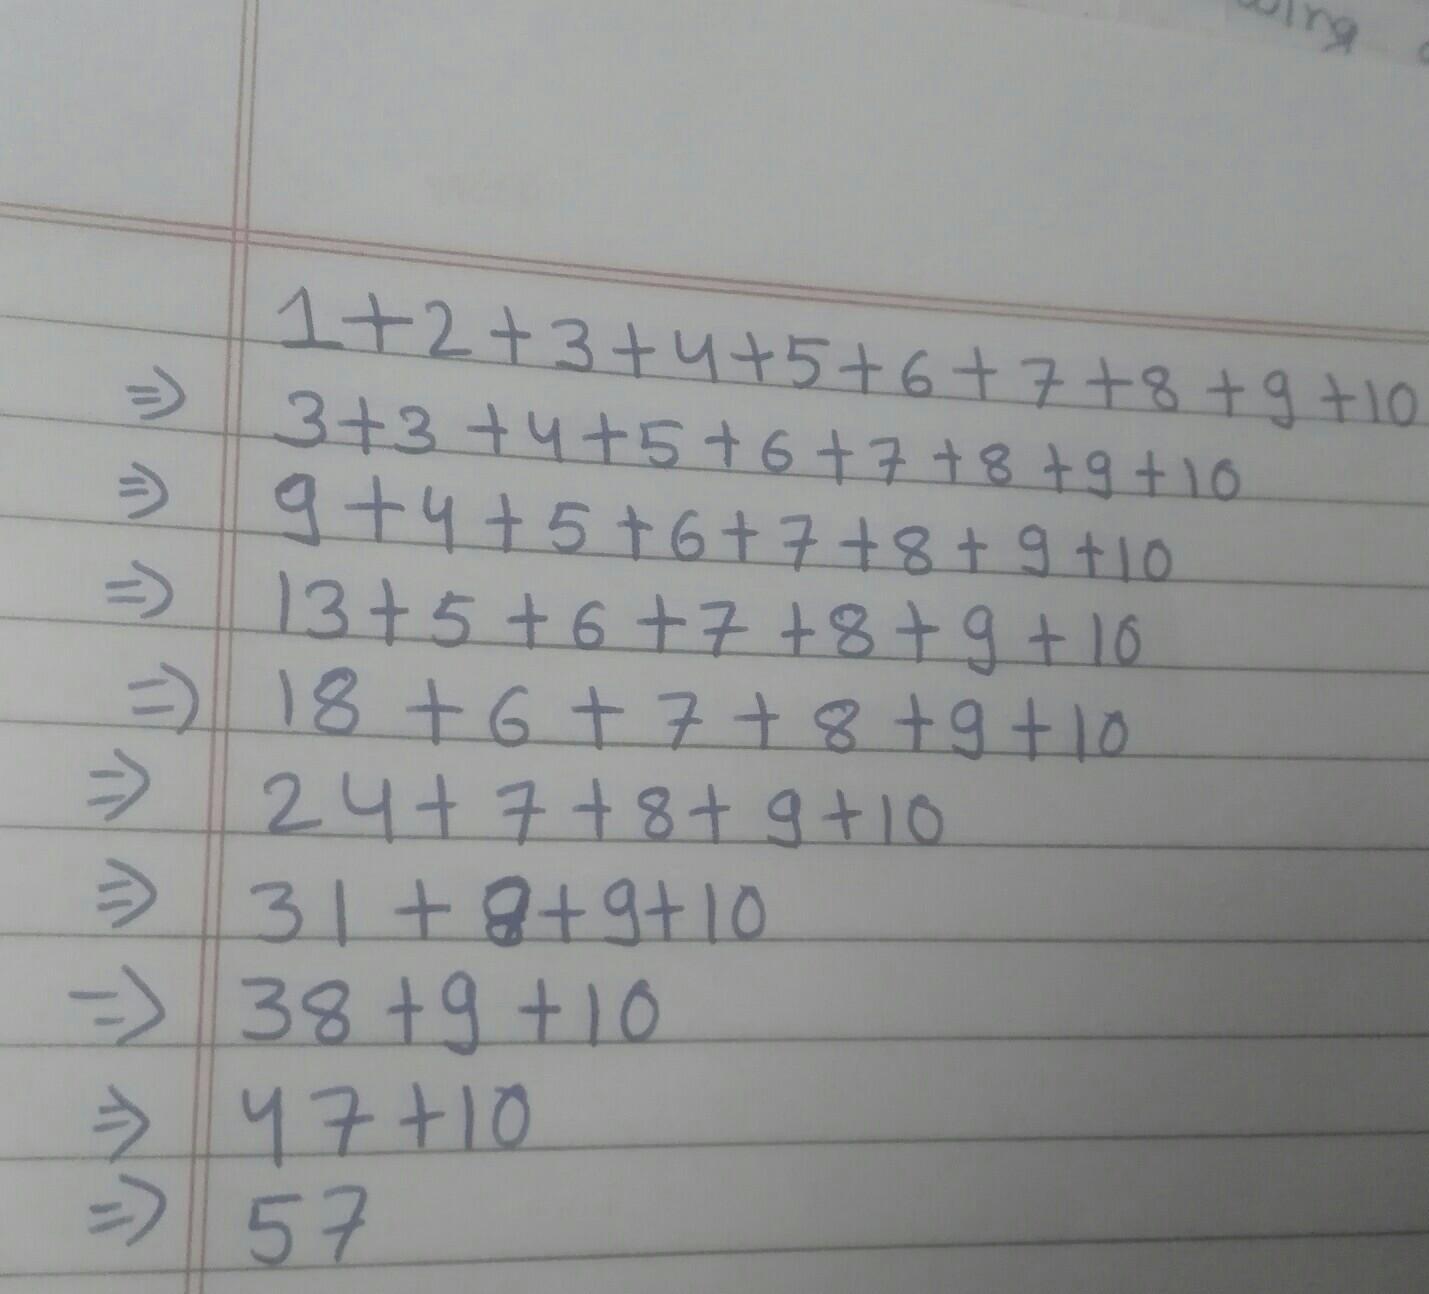 wing
1+2+3+4+5+6+7+8+9+10
⇒ 3+3+4+5+6+7+8+9+10
⇒ 9+4+5+6+7+8+9+10
⇒ 13+5+6+7+8+9+10
⇒ 18+6+7+8+9+10
⇒ 24+7+8+9+10
⇒ 31+8+9+10
⇒ 38+9+10
⇒ 47+10
⇒ 57